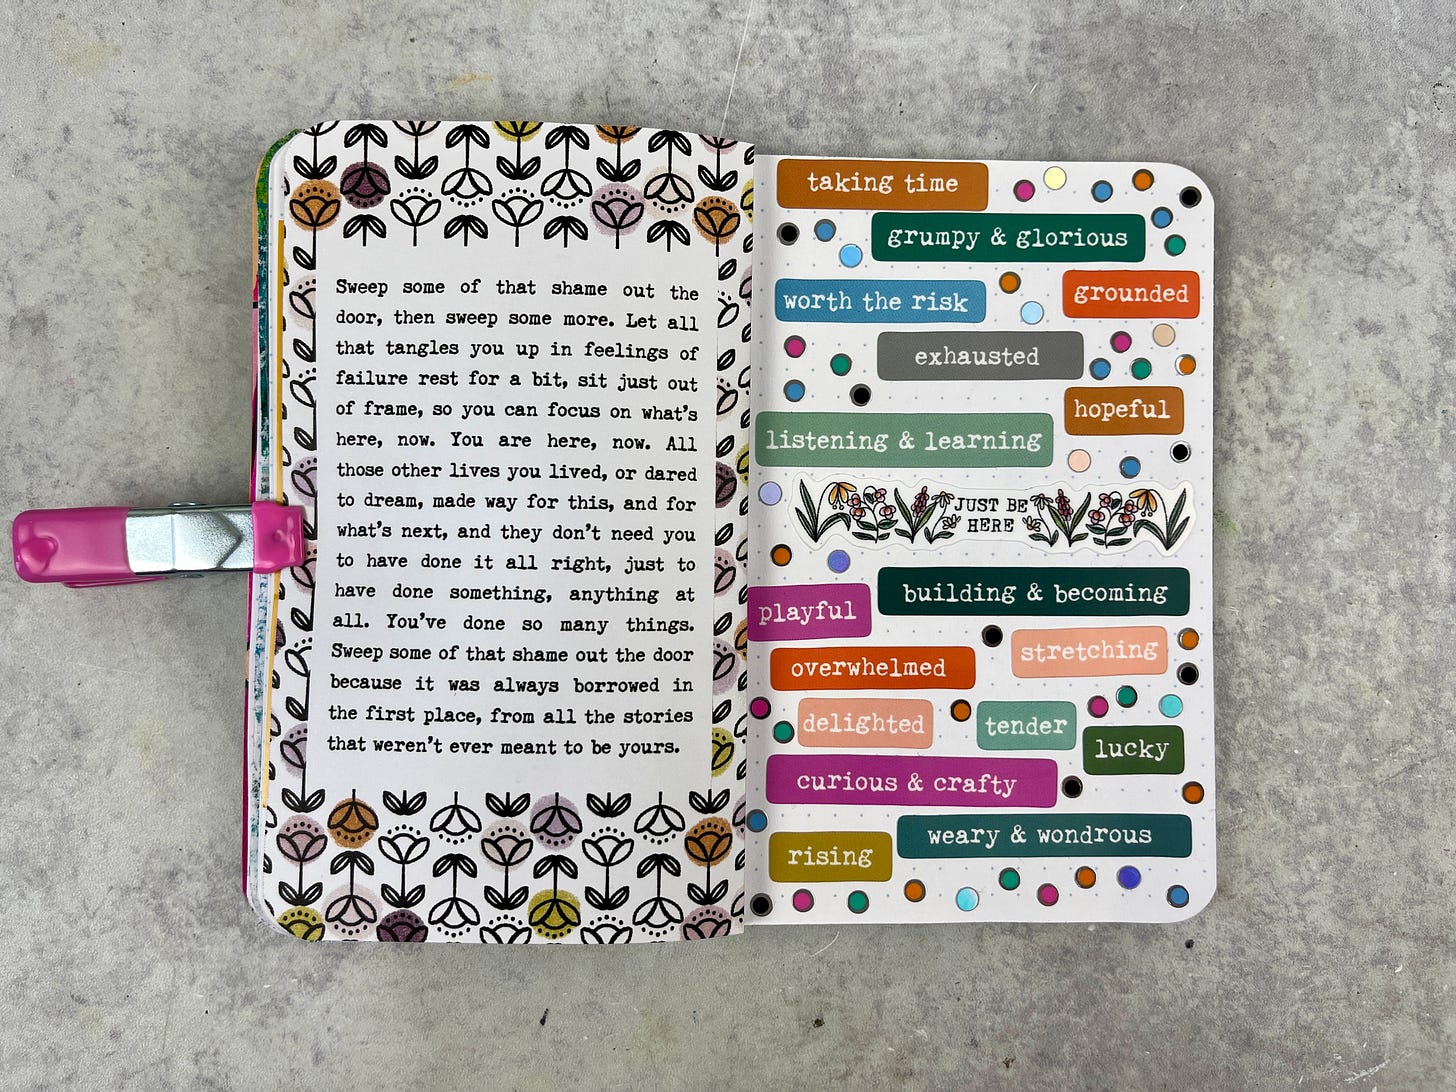 Sweep some of that shame out the
door, then sweep some more. Let all
that tangles you up in feelings of
failure rest for a bit, sit just out
of frame, so you can focus on what's
here, now. You are here, now. All
those other lives you lived, or dared
to dream, made way for this, and for
what's next, and they don't need you
to have done it all right, just to
have done something, anything at
all. You've done so many things.
Sweep some of that shame out the door
because it was always borrowed in
the first place, from all the stories
that weren't ever meant to be yours.
taking time
grumpy & glorious
worth the risk
grounded
exhausted
hopeful
listening & learning
JUST BE
HERE
building & becoming
playful
stretching
overwhelmed
delighted
tender
lucky
curious & crafty
weary & wondrous
rising